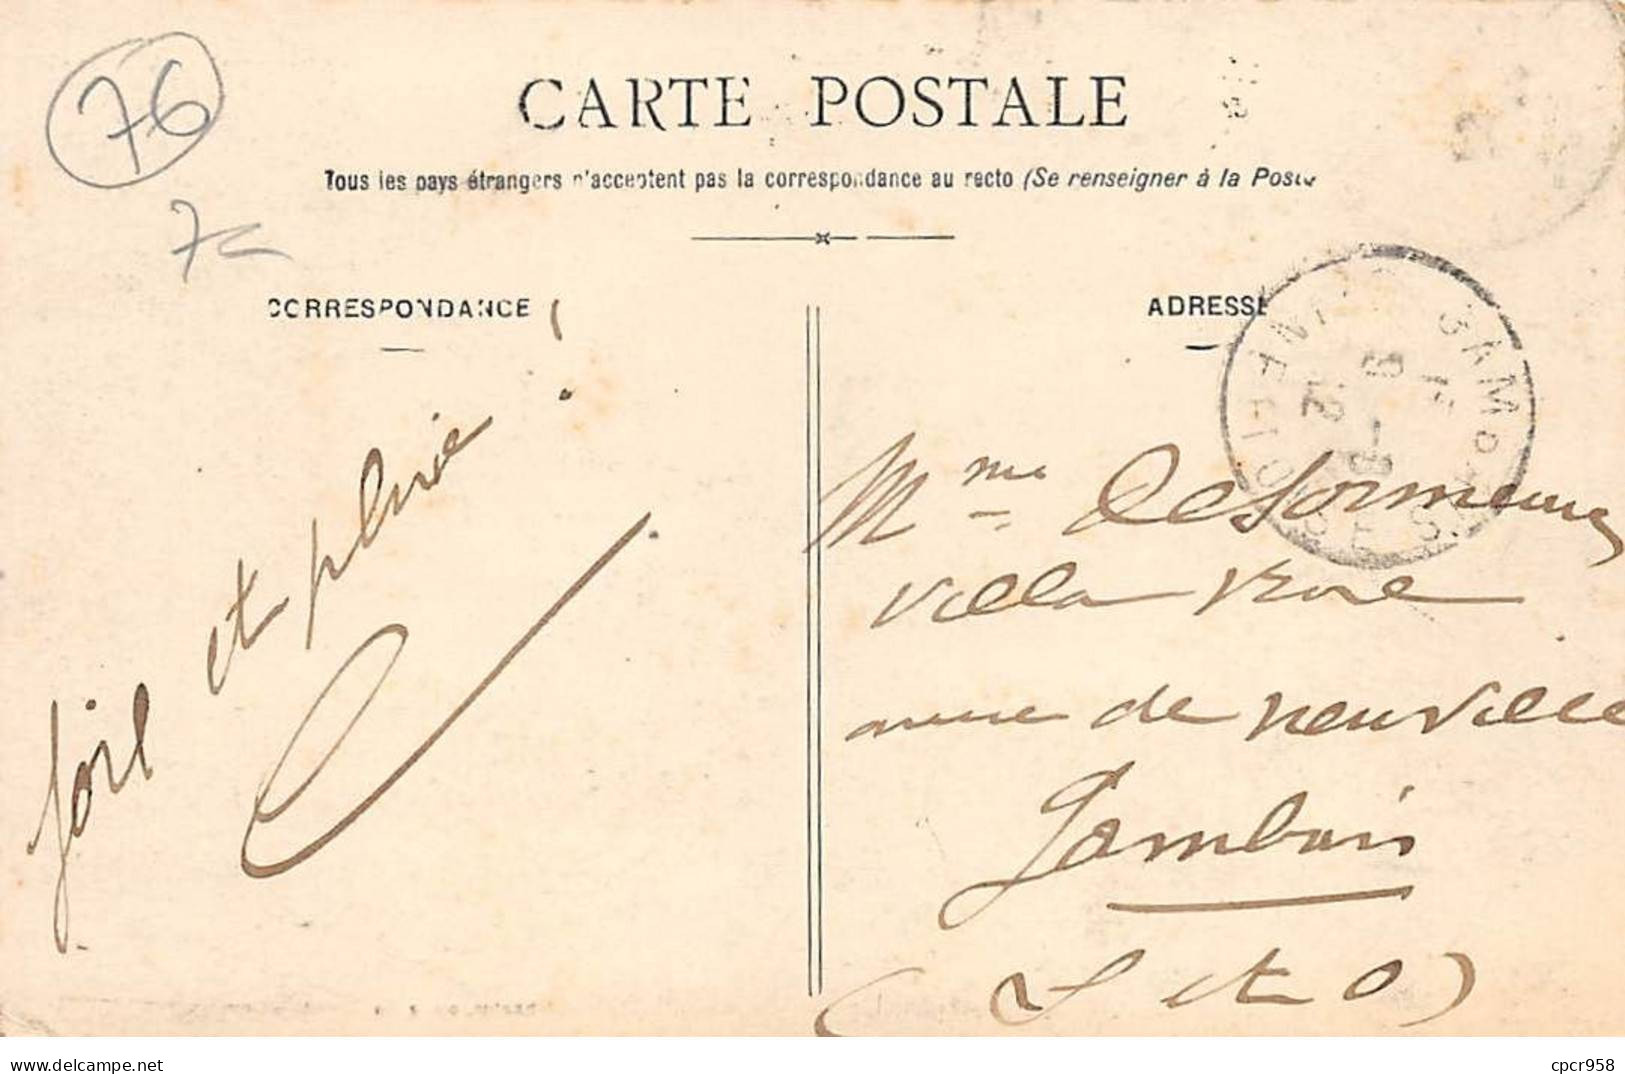 76
7c
CARTE POSTALE
Tous les pays étrangers n'acceptent pas la correspondance au recto (Se renseigner à la Poste
CORRESPONDANCE
ADRESSE
froid et pluie !
Mme Desormeaux
Villa Rose
avenue de Neuville
Gambais
(S et O)
delcampe.net
cpcr958